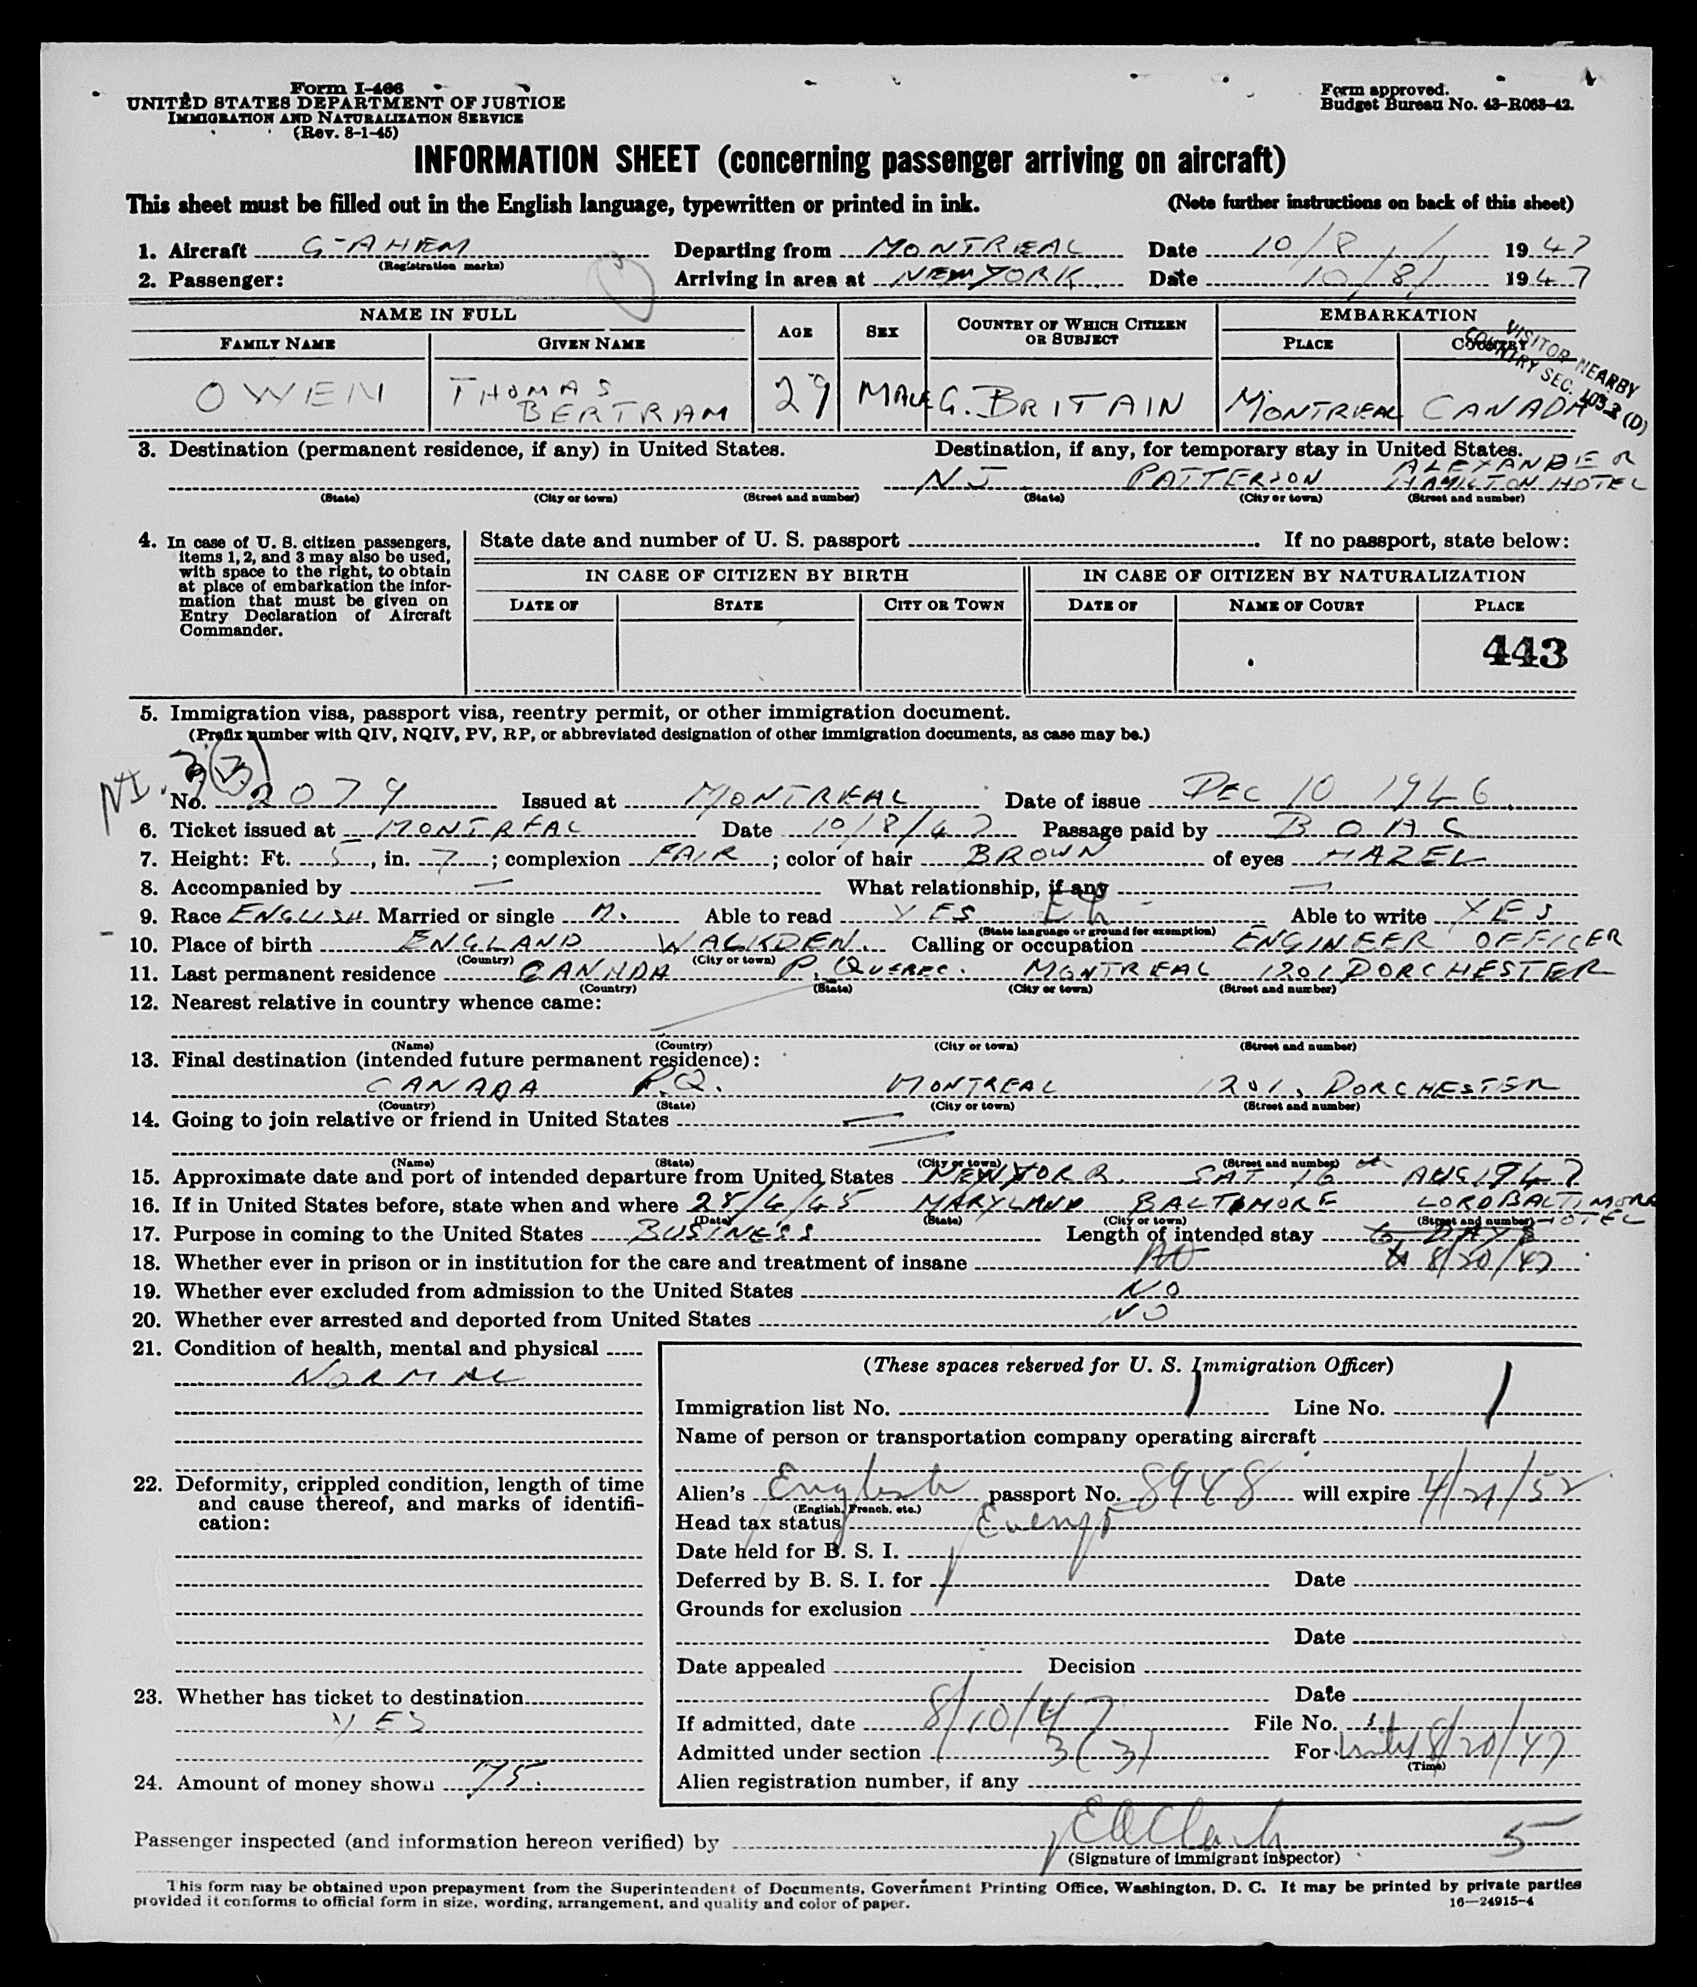 Form I-466
UNITED STATES DEPARTMENT OF JUSTICE
IMMIGRATION AND NATURALIZATION SERVICE
(Rev. 8-1-45)
Form approved.
Budget Bureau No. 43-R063-42.
INFORMATION SHEET (concerning passenger arriving on aircraft)
This sheet must be filled out in the English language, typewritten or printed in ink. (Note further instructions on back of this sheet)
1. Aircraft G-AHEM Departing from MONTREAL Date 10/8/ 1947
(Registration marks)
2. Passenger: Arriving in area at NEW YORK Date 10/8/ 1947
NAME IN FULL AGE SEX COUNTRY OF WHICH CITIZEN OR SUBJECT EMBARKATION
FAMILY NAME GIVEN NAME PLACE COUNTRY
VISITOR NEARBY
COUNTRY SEC.
OWEN THOMAS BERTRAM 29 MALE G. BRITAIN MONTREAL CANADA
3. Destination (permanent residence, if any) in United States. Destination, if any, for temporary stay in United States.
NJ PATTERSON ALEXANDER HAMILTON HOTEL
(State) (City or town) (Street and number) (State) (City or town) (Street and number)
4. In case of U. S. citizen passengers, items 1, 2, and 3 may also be used, with space to the right, to obtain at place of embarkation the information that must be given on Entry Declaration of Aircraft Commander.
State date and number of U. S. passport If no passport, state below:
IN CASE OF CITIZEN BY BIRTH IN CASE OF CITIZEN BY NATURALIZATION
DATE OF STATE CITY OR TOWN DATE OF NAME OF COURT PLACE
443
5. Immigration visa, passport visa, reentry permit, or other immigration document.
(Prefix number with QIV, NQIV, PV, RP, or abbreviated designation of other immigration documents, as case may be.)
NI. 3(3)
No. 2079 Issued at MONTREAL Date of issue DEC 10 1946
6. Ticket issued at MONTREAL Date 10/8/47 Passage paid by BOAC
7. Height: Ft. 5, in. 7; complexion FAIR; color of hair BROWN of eyes HAZEL
8. Accompanied by — What relationship, if any —
9. Race ENGLISH Married or single M. Able to read YES Able to write YES
(State language or ground for exemption)
10. Place of birth ENGLAND WALKDEN. Calling or occupation ENGINEER OFFICER
(Country) (City or town)
11. Last permanent residence CANADA P. QUEBEC. MONTREAL 1201 DORCHESTER
(Country) (State) (City or town) (Street and number)
12. Nearest relative in country whence came:
(Name) (Country) (City or town) (Street and number)
13. Final destination (intended future permanent residence):
CANADA P.Q. MONTREAL 1201. DORCHESTER
(Country) (State) (City or town) (Street and number)
14. Going to join relative or friend in United States —
(Name) (State) (City or town) (Street and number)
15. Approximate date and port of intended departure from United States NEW YORK. SAT 16th AUG 1947
16. If in United States before, state when and where 28/4/45 MARYLAND BALTIMORE LORD BALTIMORE HOTEL
(Date) (State) (City or town) (Street and number)
17. Purpose in coming to the United States BUSINESS Length of intended stay 6 DAYS
18. Whether ever in prison or in institution for the care and treatment of insane NO 8/20/47
19. Whether ever excluded from admission to the United States NO
20. Whether ever arrested and deported from United States NO
21. Condition of health, mental and physical
NORMAL
22. Deformity, crippled condition, length of time and cause thereof, and marks of identification:
23. Whether has ticket to destination
YES
24. Amount of money shown 75.
(These spaces reserved for U. S. Immigration Officer)
Immigration list No. 1 Line No. 1
Name of person or transportation company operating aircraft
Alien's English passport No. 8948 will expire 4/21/52
(English, French, etc.)
Head tax status Exempt
Date held for B. S. I.
Deferred by B. S. I. for Date
Grounds for exclusion
Date
Date appealed Decision
Date
If admitted, date 8/10/47 File No.
Admitted under section 3(3) For until 8/20/47
(Time)
Alien registration number, if any
Passenger inspected (and information hereon verified) by 5
(Signature of immigrant inspector)
This form may be obtained upon prepayment from the Superintendent of Documents, Government Printing Office, Washington, D. C. It may be printed by private parties
provided it conforms to official form in size, wording, arrangement, and quality and color of paper. 16—24915-4